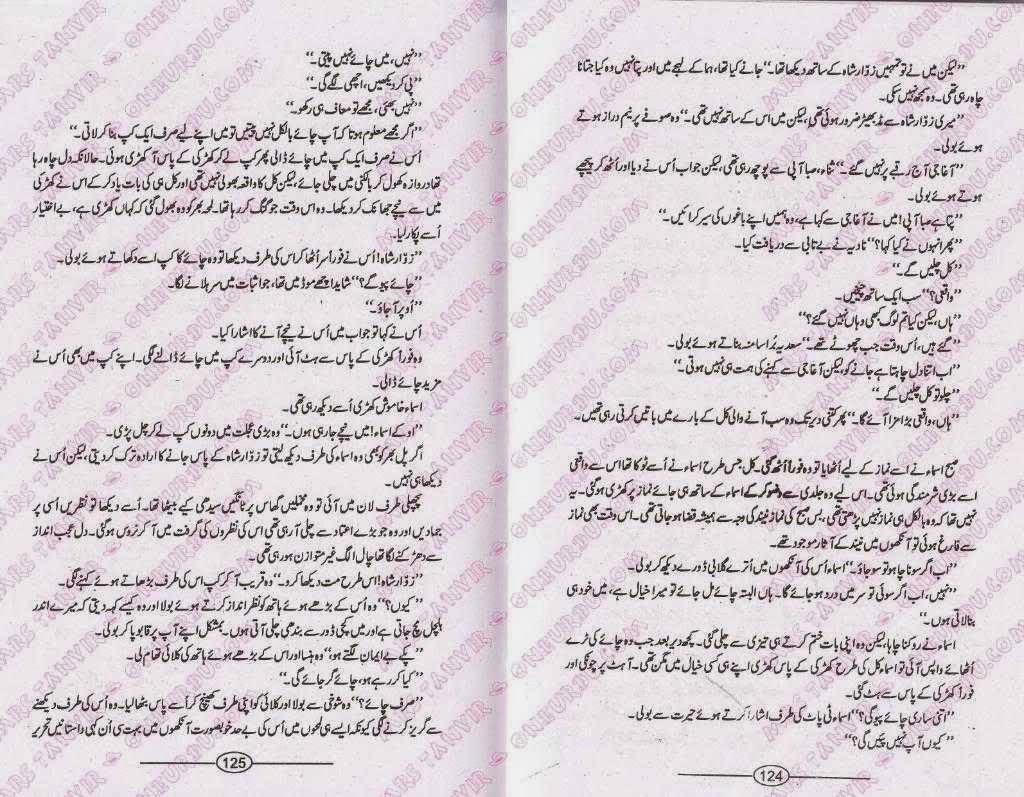 ’’لیکن میں نے تو تمہیں زوّار شاہ کے ساتھ دیکھا تھا۔‘‘ جانے کیا تھا، ہما کے لہجے میں اور پتا نہیں وہ کیا جتانا
چاہ رہی تھی۔ وہ سمجھ نہیں سکی۔
’’میری زوّار شاہ سے مڈبھیڑ ضرور ہوئی تھی، لیکن میں اس کے ساتھ نہیں تھی۔‘‘ وہ صوفے پر نیم دراز ہوتے
ہوئے بولی۔
’’آغا جی آج رقبے پر نہیں گئے۔‘‘ ثناء، صبا آپی سے پوچھ رہی تھی، لیکن جواب اُس نے دیا اور اُٹھ کر پیچھے
ہوتے ہوئے بولی۔
’’پتا ہے صبا آپی! میں نے آغا جی سے کہا ہے، وہ ہمیں اپنے باغوں کی سیر کرائیں۔‘‘
’’پھر انہوں نے کیا کہا؟‘‘ نادیہ نے بے تابی سے دریافت کیا۔
’’کل چلیں گے۔‘‘
’’واقعی؟‘‘ سب ایک ساتھ چیخیں۔
’’ہاں، لیکن کیا تم لوگ کبھی وہاں نہیں گئے؟‘‘
’’گئے ہیں، اُس وقت جب چھوٹے تھے۔‘‘ سعدیہ بُرا سا منہ بناتے ہوئے بولی۔
’’اب اتنا دل چاہتا ہے جانے کو، لیکن آغا جی سے کہنے کی ہمت ہی نہیں ہوتی۔‘‘
’’چلو تو کل چلیں گے۔‘‘
’’ہاں، واقعی بڑا مزا آئے گا۔‘‘ پھر کتنی دیر تک وہ سب آنے والی کل کے بارے میں باتیں کرتی رہی تھیں۔
صبح اسماء نے اسے نماز کے لیے اُٹھایا تو وہ فوراً اُٹھ گئی۔ کل جس طرح اسماء نے اُسے ٹوکا تھا اس سے واقعی
اسے بڑی شرمندگی ہوئی تھی۔ اس لیے وہ جلدی سے وضو کر کے اسماء کے ساتھ ہی جائے نماز پر کھڑی ہو گئی۔ یہ
نہیں تھا کہ وہ بالکل ہی نماز نہیں پڑھتی تھی، بس صبح کی نماز نیند کی وجہ سے ہمیشہ قضا ہو جاتی تھی۔ اس وقت بھی نماز
سے فارغ ہوئی تو آنکھوں میں نیند کے آثار موجود تھے۔
’’اب اگر سونا چاہو تو سو جاؤ۔‘‘ اسماء اُس کی آنکھوں میں اُترے گلابی ڈورے دیکھ کر بولی۔
’’نہیں، اب اگر سوئی تو سر میں درد ہو جائے گا۔ ہاں البتہ چائے مل جائے تو میرا خیال ہے، میں خود ہی
بنا لاتی ہوں۔‘‘
اسماء نے روکنا چاہا، لیکن وہ اپنی بات ختم کرتے ہی تیزی سے چلی گئی۔ کچھ دیر بعد جب وہ چائے کی ٹرے
اُٹھائے واپس آئی تو اسماء کل کی طرح کھڑکی کے پاس کھڑی اپنے ہی کسی خیال میں مگن تھی۔ آہٹ پر چونکی اور
فوراً کھڑکی کے پاس سے ہٹ گئی۔
’’اتنی ساری چائے پیو گی؟‘‘ اسماء ٹی پاٹ کی طرف اشارا کرتے ہوئے حیرت سے بولی۔
’’کیوں آپ نہیں پئیں گی؟‘‘
124
’’نہیں، میں چائے نہیں پیتی۔‘‘
’’پی کر دیکھیں، اچھی لگے گی۔‘‘
’’نہیں بھئی، مجھے تو معاف ہی رکھو۔‘‘
’’اگر مجھے معلوم ہوتا کہ آپ چائے بالکل نہیں پیتیں تو میں اپنے لیے صرف ایک کپ بنا کر لاتی۔‘‘
اُس نے صرف ایک کپ میں چائے ڈالی پھر کپ لے کر کھڑکی کے پاس آ کھڑی ہوئی۔ حالانکہ دل چاہ رہا
تھا دروازہ کھول کر بالکنی میں چلی جائے، لیکن کل کا واقعہ بھولی نہیں تھی اور کل ہی کی بات یاد کر کے اس نے کھڑکی
میں سے نیچے جھانک کر دیکھا۔ وہ اس وقت جوگنگ کر رہا تھا۔ لمحہ بھر کو وہ بھول گئی کہ کہاں کھڑی ہے، بے اختیار
اُسے پکار لیا۔
’’زوّار شاہ! اُس نے فوراً سر اُٹھا کر اس کی طرف دیکھا تو وہ چائے کا کپ اسے دکھاتے ہوئے بولی۔
’’چائے پیو گے؟‘‘ شاید اچھے موڈ میں تھا، جو اثبات میں سر ہلانے لگا۔
’’اُوپر آ جاؤ۔‘‘
اُس نے کہا تو جواب میں اُس نے نیچے آنے کا اشارا کیا۔
وہ فوراً کھڑکی کے پاس سے ہٹ آئی اور دوسرے کپ میں چائے ڈالنے لگی۔ اپنے کپ میں بھی اُس نے
مزید چائے ڈالی۔
اسماء خاموش کھڑی اُسے دیکھ رہی تھی۔
’’او کے اسماء! میں نیچے جا رہی ہوں۔‘‘ وہ بڑی عجلت میں دونوں کپ لے کر چل پڑی۔
اگر پل بھر کو بھی وہ اسماء کی طرف دیکھ لیتی تو زوّار شاہ کے پاس جانے کا ارادہ ترک کر دیتی، لیکن اُس نے
دیکھا ہی نہیں۔
پچھلی طرف لان میں آئی تو وہ مخملیں گھاس پر ٹانگیں سیدھی کیے بیٹھا تھا۔ اُسے دیکھا تو نظریں اُسی پر
جما دیں اور وہ جو بڑے اعتماد سے چلی آ رہی تھی اس کی نظروں کی گرفت میں آ کر نروس ہو گئی۔ دل عجب انداز
سے دھڑکنے لگا تھا چال الگ غیر متوازن ہو رہی تھی۔
’’زوّار شاہ! اس طرح مت دیکھا کرو۔‘‘ وہ قریب آ کر کپ اس کی طرف بڑھاتے ہوئے کہنے لگی۔
’’کیوں؟‘‘ وہ اُس کے بڑھے ہوئے ہاتھ کو نظر انداز کرتے ہوئے بولا اور وہ کیسے کہہ دیتی کہ میرے اندر
ہلچل مچ جاتی ہے اور میں کچی ڈور سے بندھی چلی آتی ہوں۔ بمشکل اپنے آپ پر قابو پا کر بولی۔
’’پکے بے ایمان لگتے ہو،‘‘ وہ ہنسا اور اس کے بڑھے ہوئے ہاتھ کی کلائی تھام لی۔
’’کیا کر رہے ہو، چائے گر جائے گی۔‘‘
’’صرف چائے؟‘‘ وہ شوخی سے بولا اور کلائی کو اپنی طرف کھینچ کر اُسے پاس بٹھا لیا۔ وہ اُس کی طرف دیکھنے
سے گریز کرنے لگی کیونکہ ایسے ہی لمحوں میں اُس کی بے حد خوبصورت آنکھوں میں بہت سی اَن کہی داستانیں تحریر
125
MARS TANVIR @ ONEURDU.COM